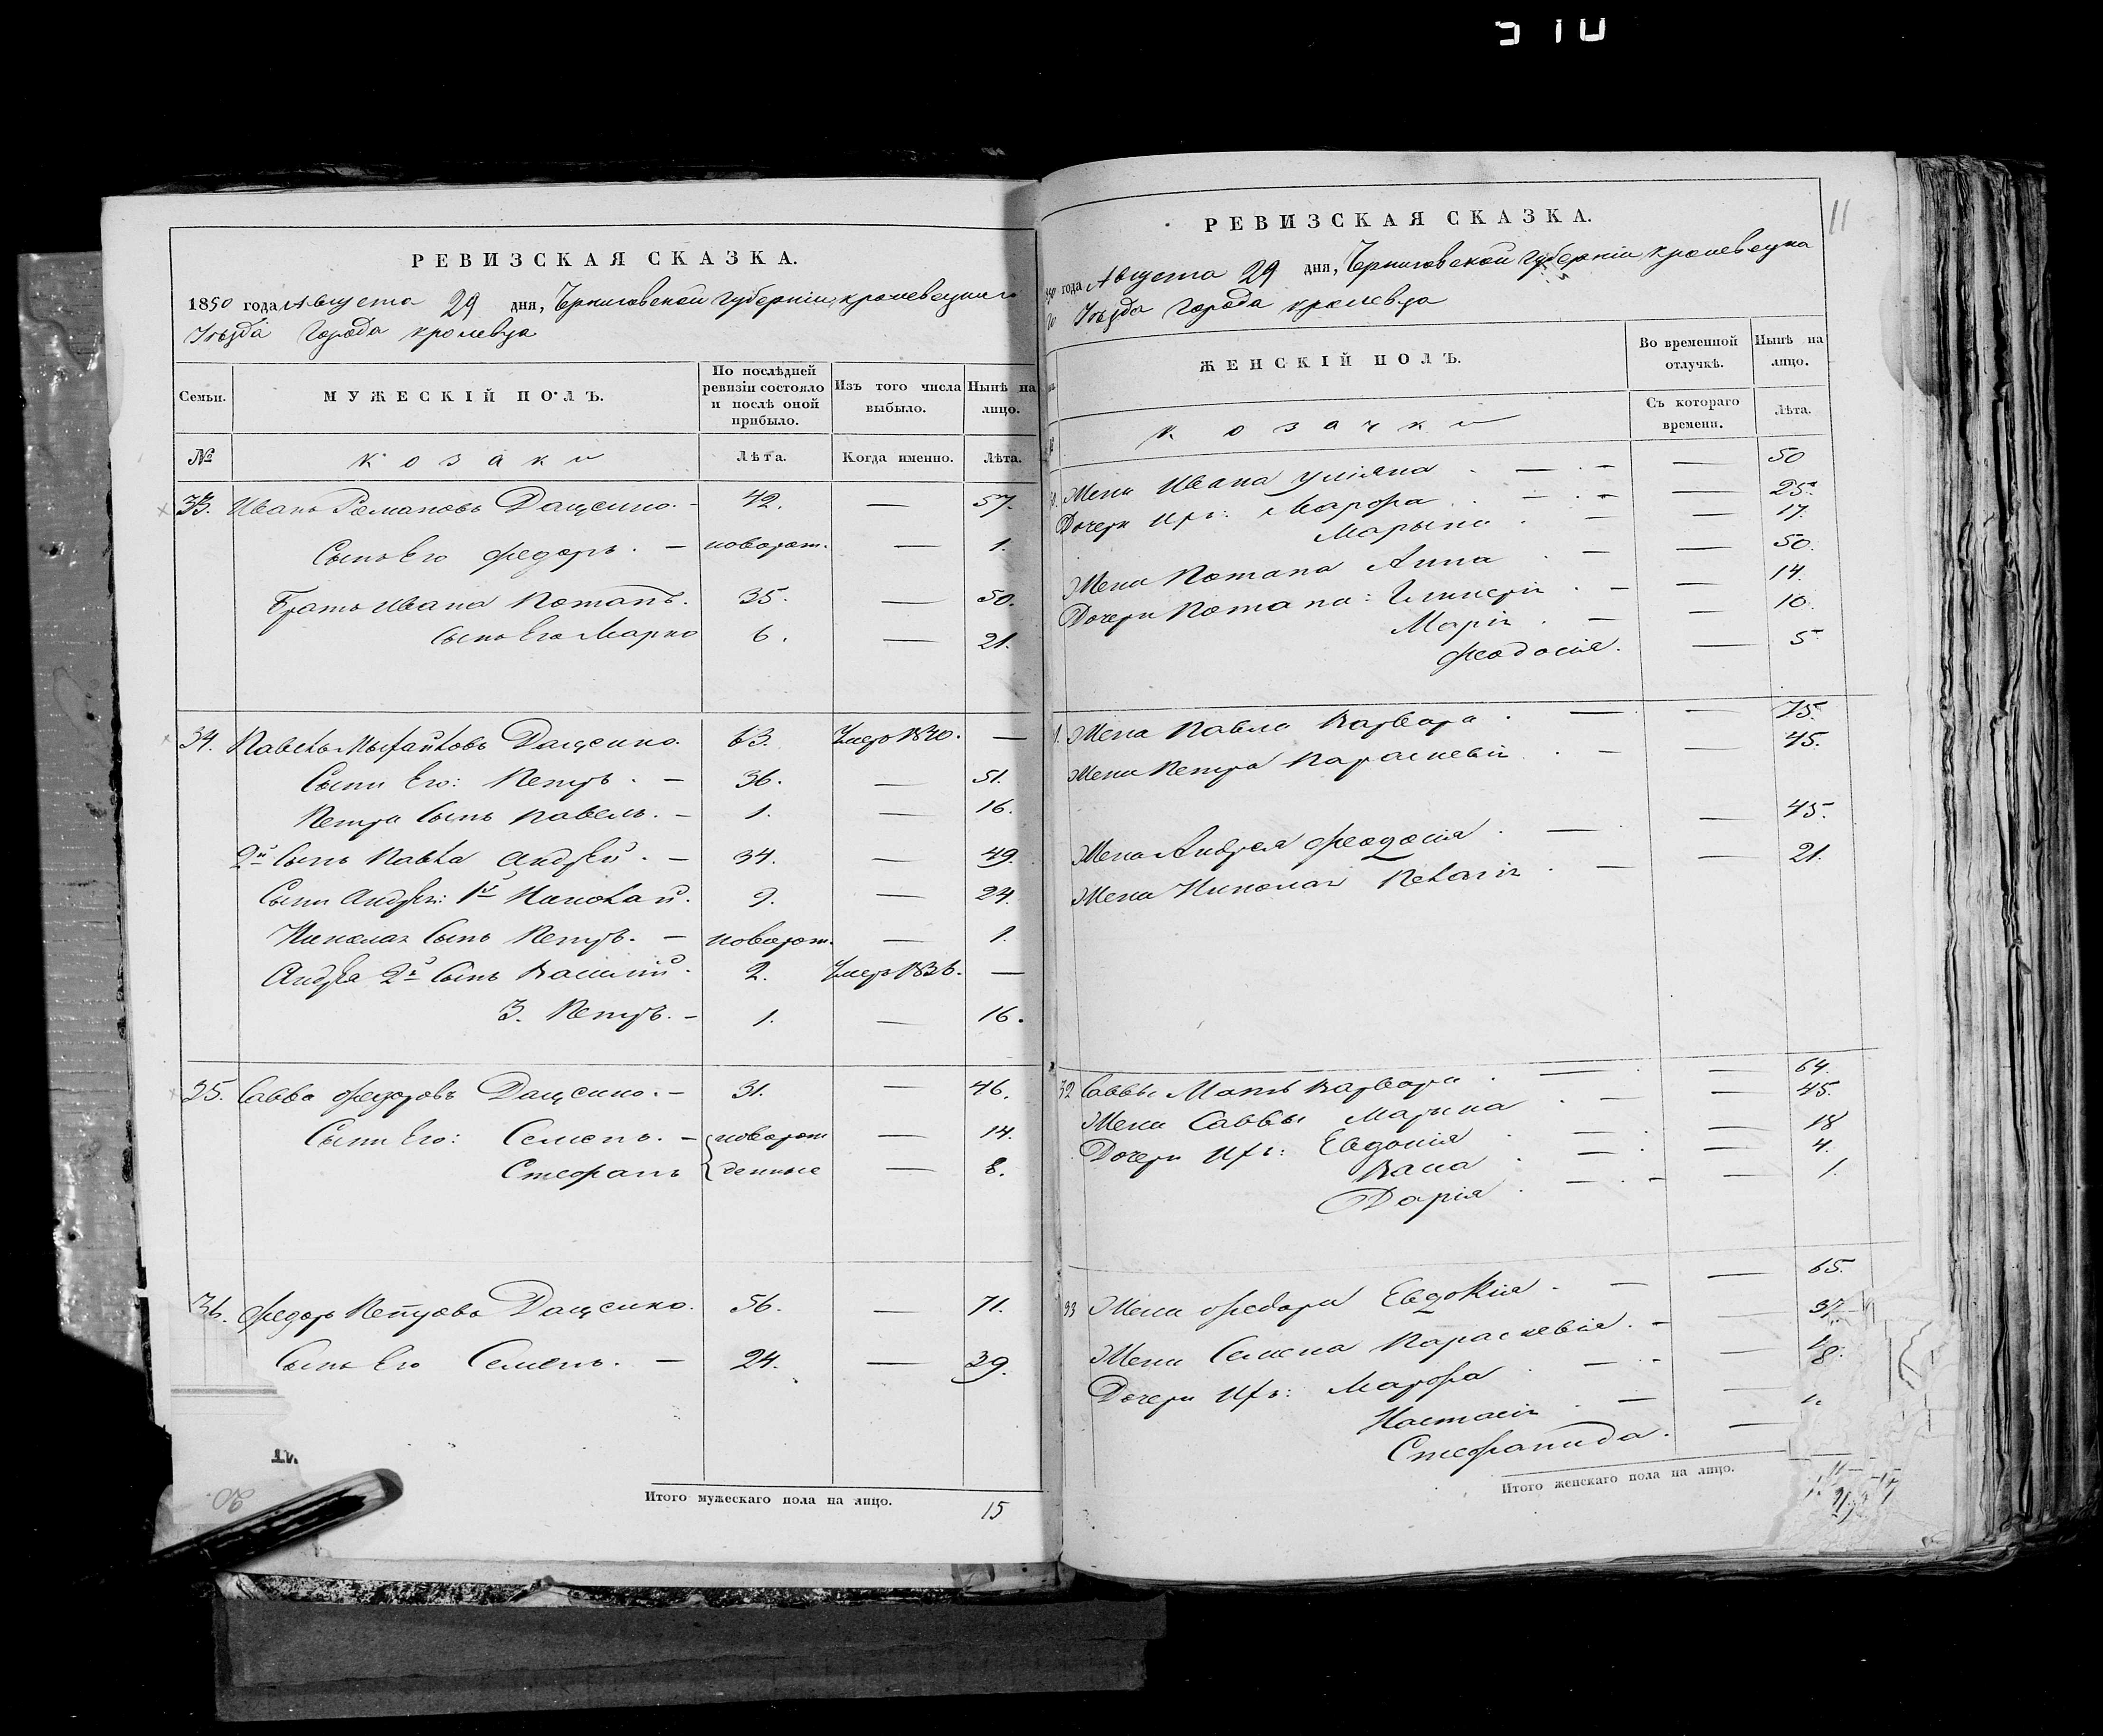 310
РЕВИЗСКАЯ СКАЗКА.
1850 года Августа 29 дня, Черниговской губерніи, кролевецкаго
Уѣзда города кролевца
Семьи.
МУЖЕСКІЙ ПОЛЪ.
По послѣдней ревизіи состояло и послѣ оной прибыло.
Изъ того числа выбыло.
Нынѣ на лицо.
№
козаки
Лѣта.
Когда именно.
Лѣта.
33. Иванъ Романовъ Дащенко. 42. — 57.
Сынъ Его Федоръ. — новорож. — 1.
Братъ Ивана Потапъ. 35. — 50.
Сынъ Его Марко 6. — 21.
34. Павелъ Дащенко. 63. Умеръ 1840. —
Сыни Его: Петръ. — 36. — 51.
Петра Сынъ Павелъ. — 1. — 16.
2й Сынъ Павла Андрей. — 34. — 49.
Сыни Андрея: 1й Николай. 9. — 24.
Николая Сынъ Петръ. — новорож. — 1.
Андрея 2й Сынъ Василій. 2. Умеръ 1836. —
3. Петръ. — 1. — 16.
35. Савва Федоровъ Дащенко. — 31. 46.
Сыни Его: Семенъ. — новорож — 14.
Стефанъ денные — 8.
36. Федоръ Петровъ Дащенко. 56. — 71.
Сынъ Его Семенъ. — 24. — 39.
Итого мужескаго пола на лицо. 15
20.
11
РЕВИЗСКАЯ СКАЗКА.
года Августа 29 дня, Черниговской губерніи кролевецка
го Уѣзда города кролевца
ЖЕНСКІЙ ПОЛЪ.
Во временной отлучкѣ.
Нынѣ на лицо.
козачки
Съ котораго времени.
Лѣта.
Жена Ивана Уліяна — — 50
Дочери Ихъ: Марфа — — 25.
Марьина — — 17.
Жена Потапа Анна — — 50.
Дочери Потапа: — — 14.
Марія — — 10.
Феодосія. — 5
Жена Павла Варвара — — 75.
Жена Петра Параскевія — — 45.
Жена Андрея Феодосія — — 45.
Жена Николая Пелагія — — 21.
32 Саввы Мать Варвара — — 64.
Жена Саввы Марина — — 45.
Дочери Ихъ: Евдокія — — 18
Васа — — 4.
Дарія — — 1.
33 Жена Федора Евдокія — — 65.
Жена Семена Параскевія. — — 37
Дочери Ихъ: Марфа — —
Настасія — — 8.
Стефанида. — 1.
Итого женскаго пола на лицо.